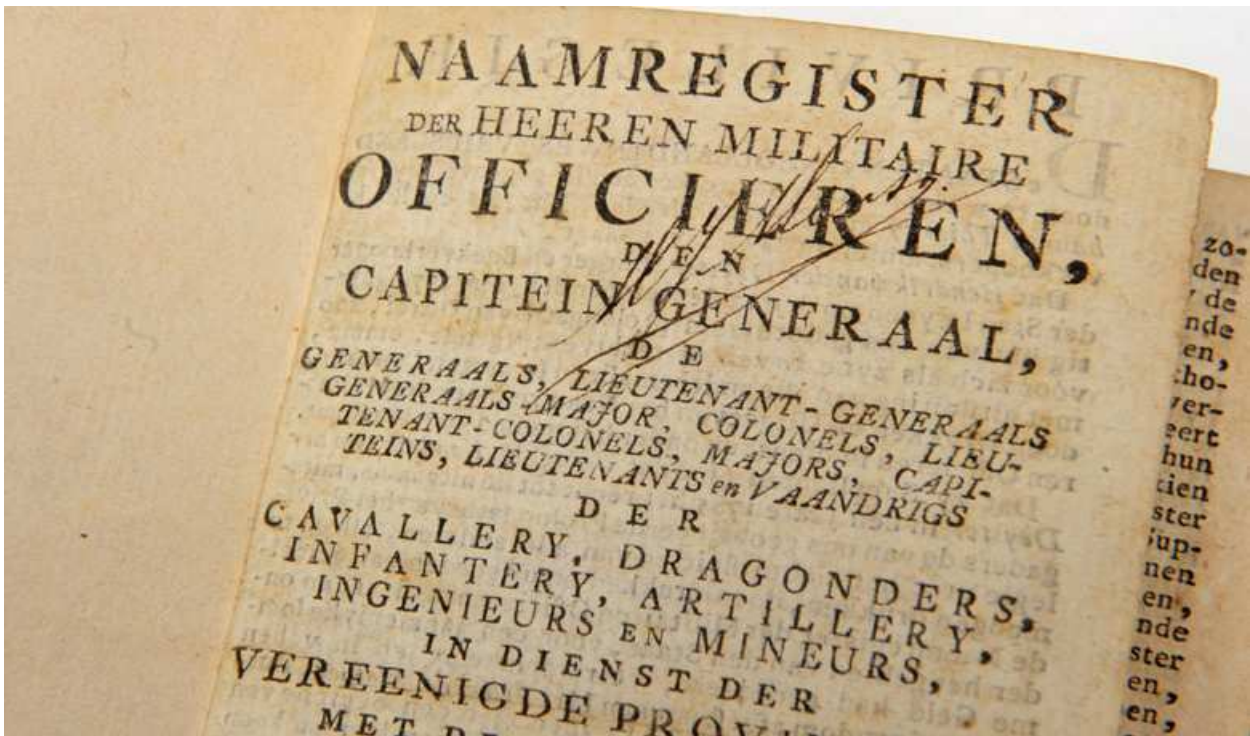 NAAMREGISTER
DER HEEREN MILITAIRE
OFFICIEREN,
DEN
CAPITEIN GENERAAL,
DE
GENERAALS, LIEUTENANT-GENERAALS
GENERAALS MAJOR, COLONELS, LIEU-
TENANT-COLONELS, MAJORS, CAPI-
TEINS, LIEUTENANTS en VAANDRIGS
DER
CAVALLERY, DRAGONDERS,
INFANTERY, ARTILLERY,
INGENIEURS EN MINEURS,
IN DIENST DER
VEREENIGDE
MET
zo-
den
de
nde
en,
tho-
ver-
eert
hun
tien
ster
Sup-
nen
en,
nde
ster
en,
en,